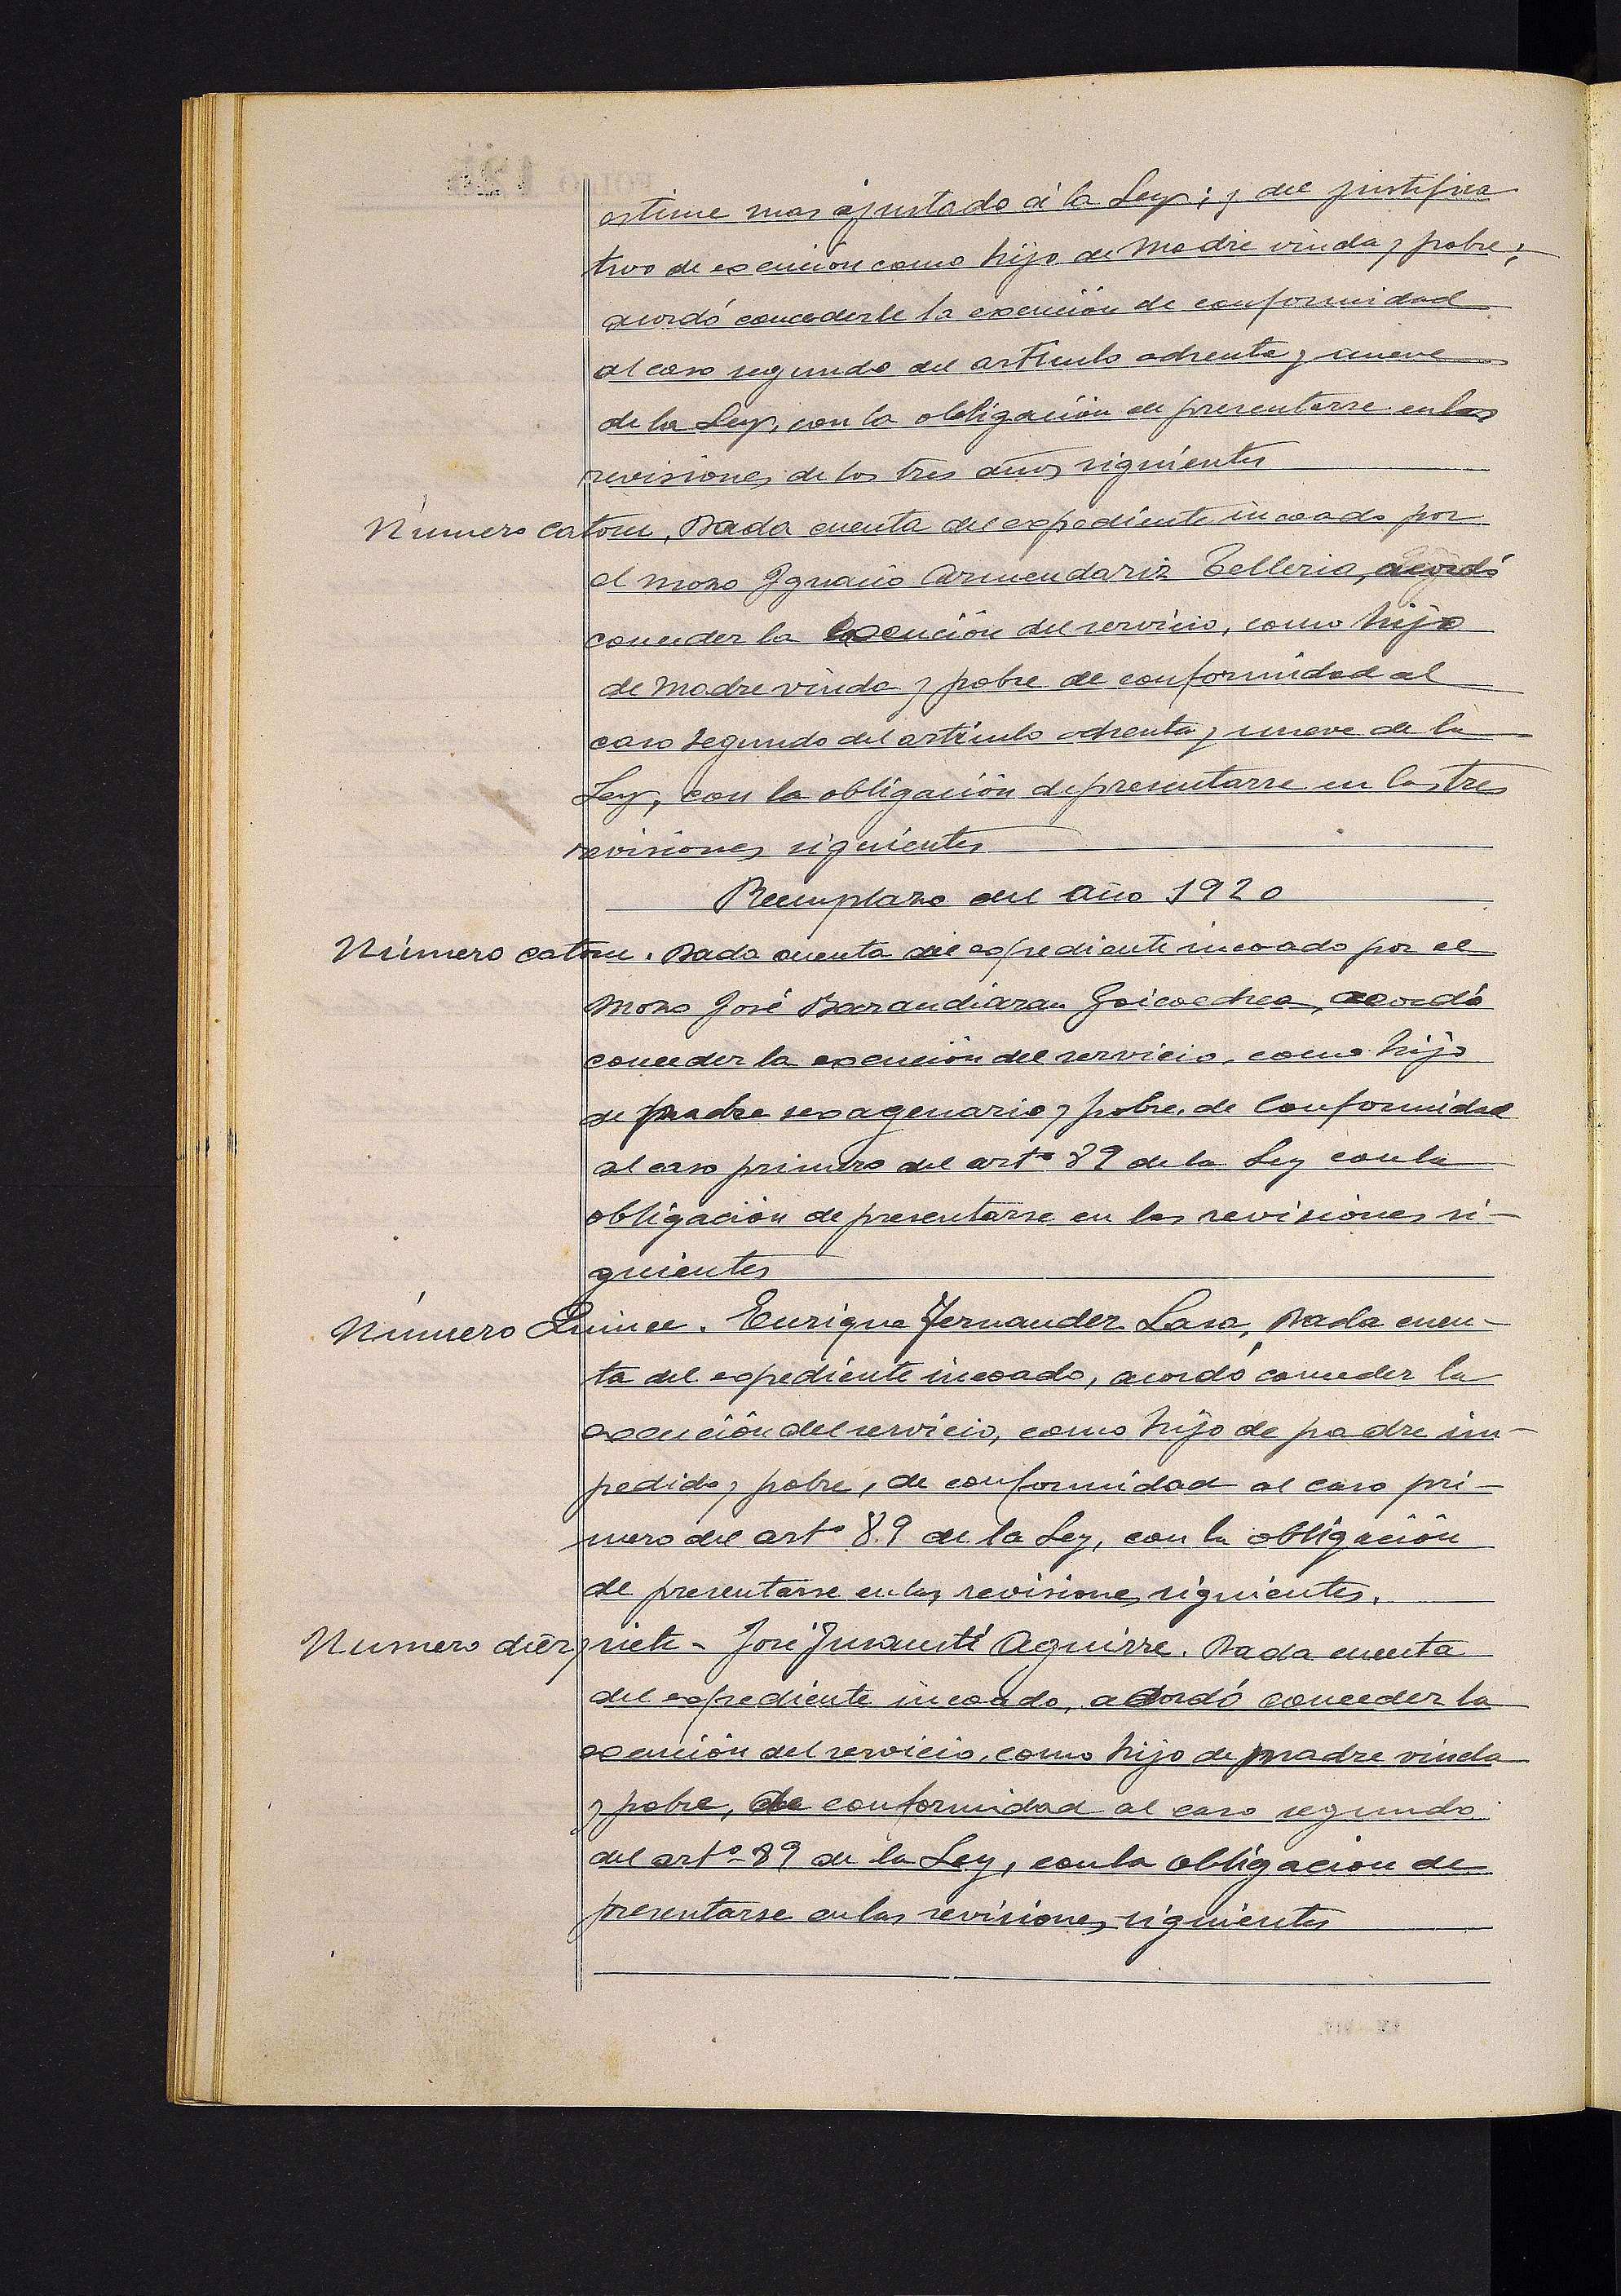 estime mas ajustado á la Ley; y del justifica
tivo de exención como hijo de Madre viuda y pobre;
acordó concederle la exención de conformidad
al caso segundo del artículo ochenta y nueve
de la Ley, con la obligación de presentarse en las
revisiones de los tres años siguientes
Número catorce, Dada cuenta del expediente incoado por
el mozo Ignacio Armendariz Telleria, acordó
conceder la exención del servicio, como hijo
de Madre viuda y pobre de conformidad al
caso segundo del artículo ochenta y nueve de la
Ley, con la obligación de presentarse en las tres
revisiones siguientes
Reemplazo del año 1920
Número catorce. Dada cuenta del expediente incoado por el
Mozo José Barandiaran Goicoechea, acordó
conceder la exención del servicio, como hijo
de padre sexagenario y pobre, de Conformidad
al caso primero del artº 89 de la Ley con la
obligación de presentarse en las revisiones si-
guientes
Número Quince. Enrique Fernandez Lasa, Dada cuen-
ta del expediente incoado, acordó conceder la
exención del servicio, como hijo de padre im-
pedido y pobre, de conformidad al caso pri-
mero del artº 89 de la Ley, con la obligación
de presentarse en las revisiones siguientes.
Numero diez y siete - José Insausti Aguirre. Dada cuenta
del expediente incoado, acordó conceder la
exención del servicio, como hijo de madre viuda
y pobre, de conformidad al caso segundo
del artº 89 de la Ley, con la obligacion de
presentarse en las revisiones siguientes